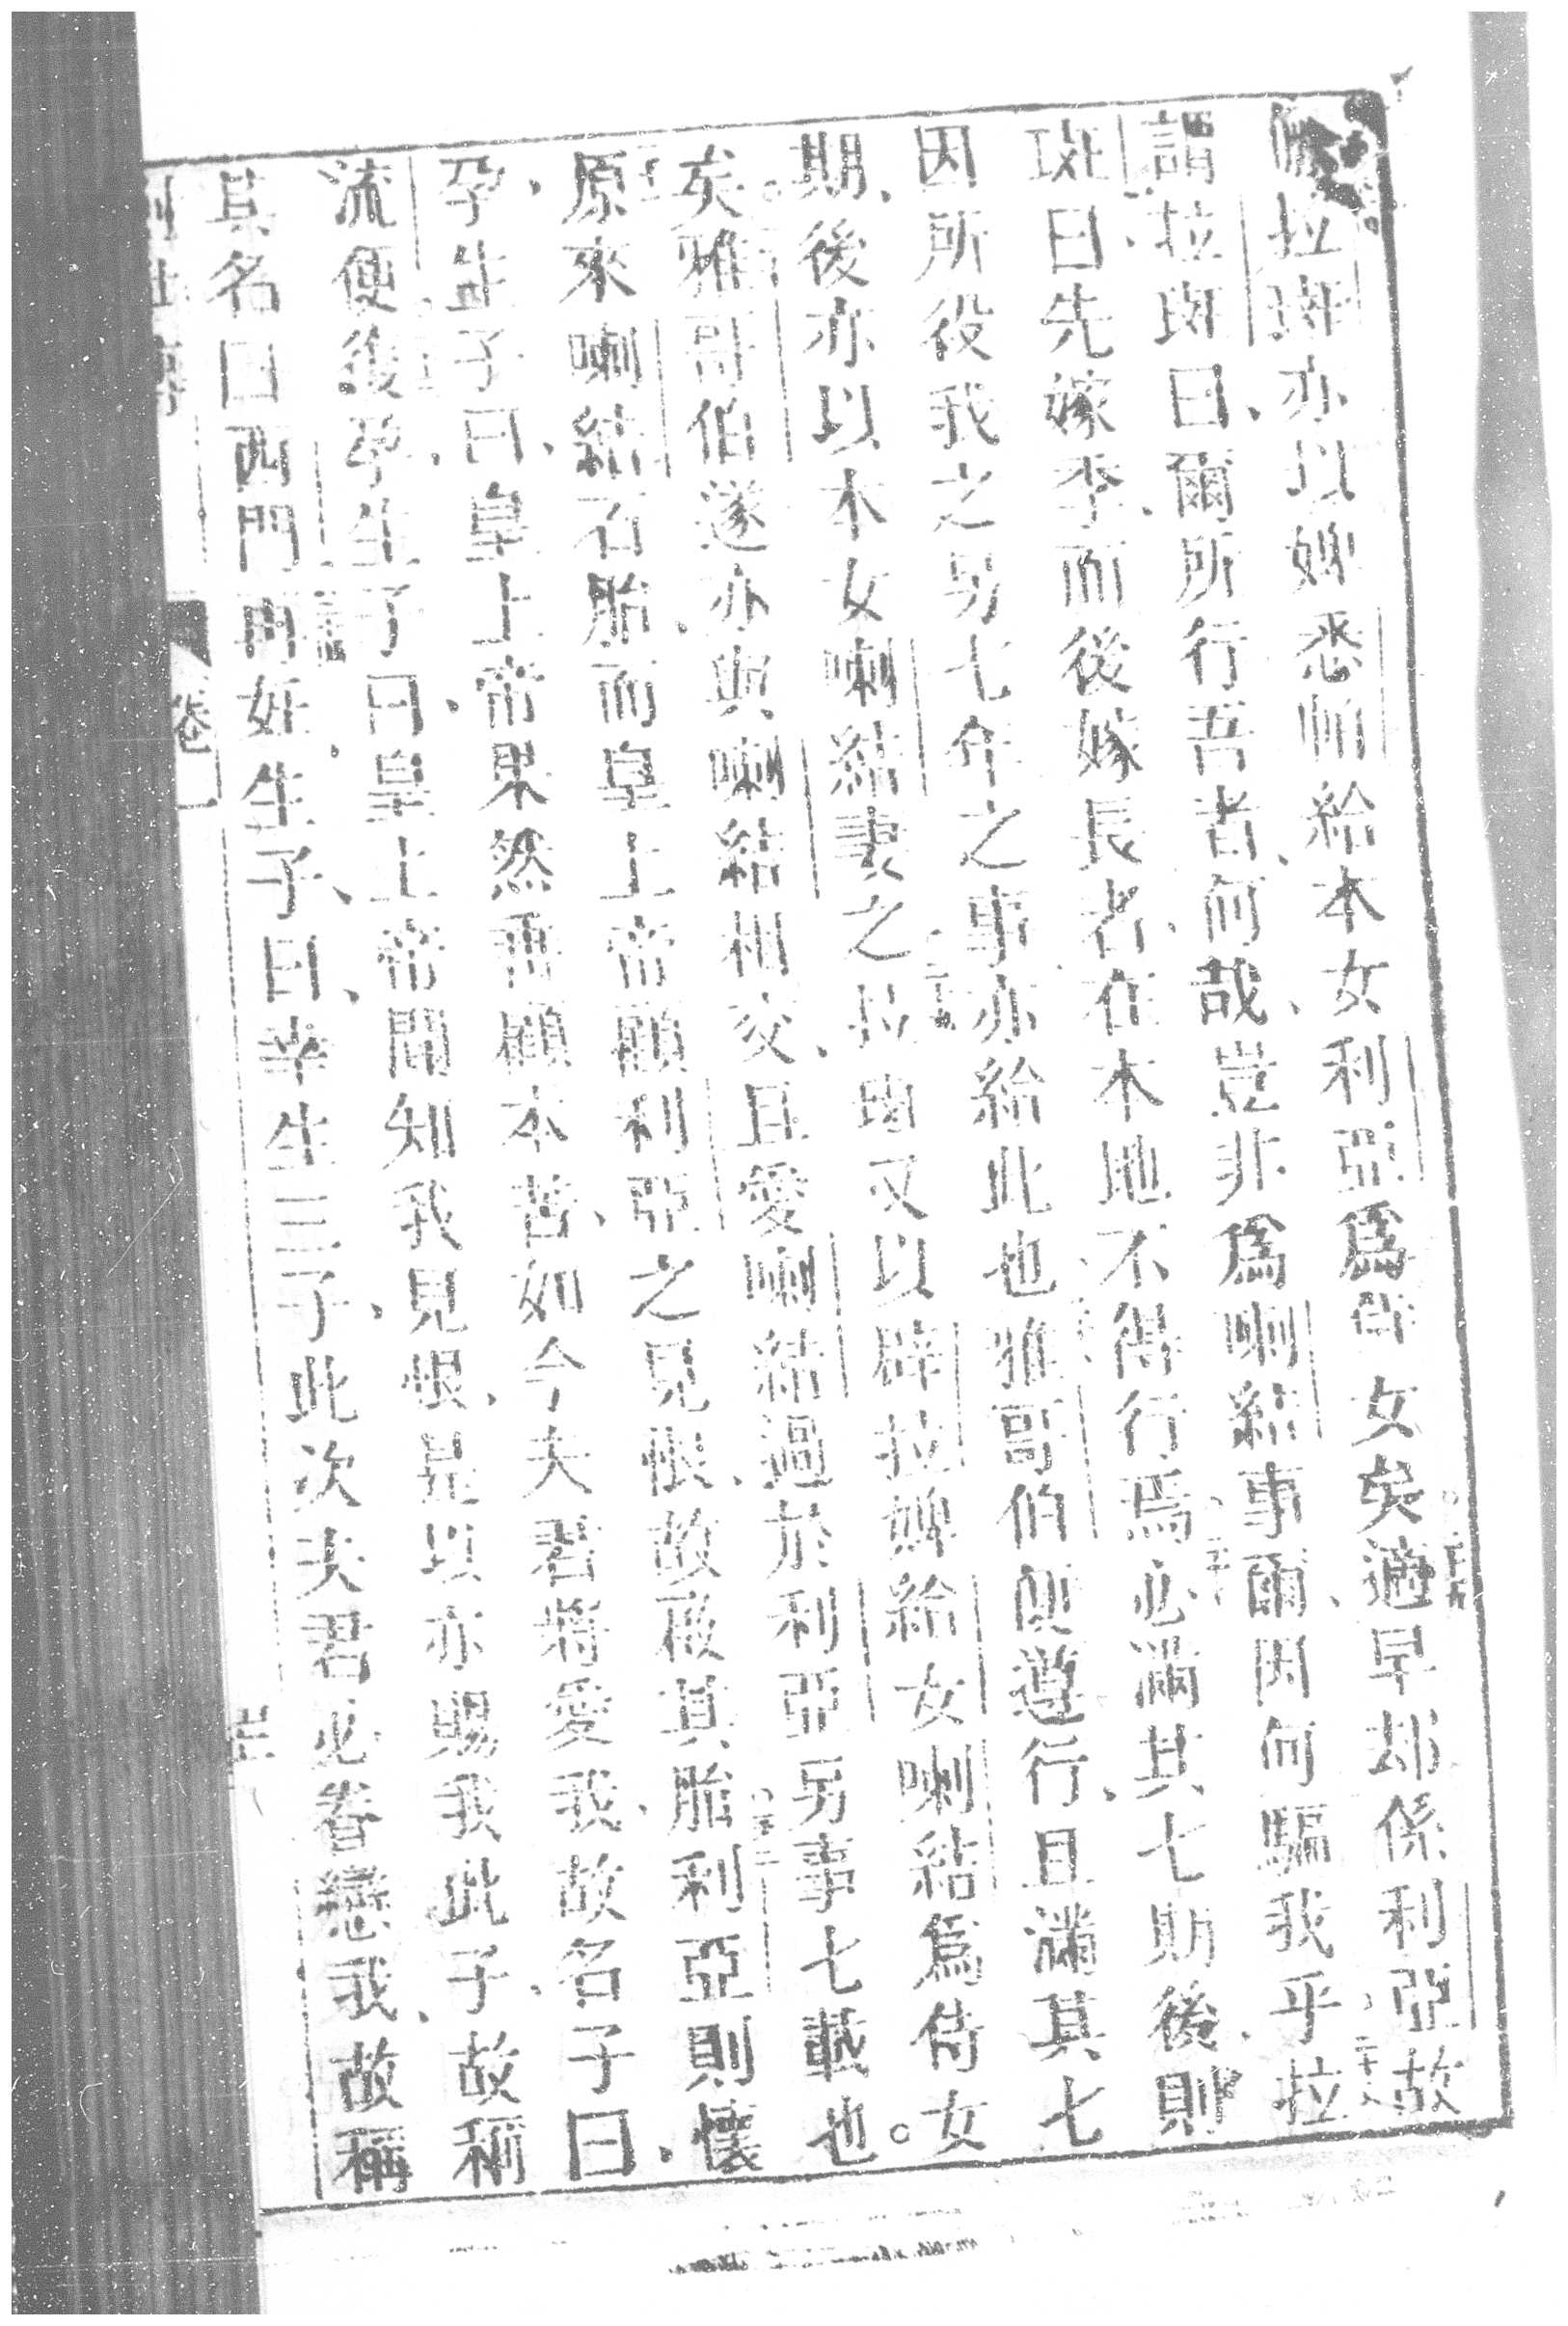 拉班亦以婢悉帕給本女利亞爲侍女矣適早却係利亞故
謂拉班曰爾所行吾者何哉豈非爲喇結事爾因何騙我乎拉
班曰先嫁季而後嫁長者在本地不得行焉必滿其七期後則
因所役我之另七年之事亦給此也雅哥伯便遵行且滿其七
期後亦以本女喇結妻之拉班又以辟拉婢給女喇結爲侍女
矣雅哥伯遂亦與喇結相交且愛喇結過於利亞另事七載也。
原來喇結石胎而皇上帝顧利亞之見恨故啟其胎利亞則懷
孕生子曰皇上帝果然垂顧本苦如今夫君將愛我故名子曰
流便後孕生子曰皇上帝聞知我見恨是以亦賜我此子故稱
其名曰西門再妊生子曰幸生三子此次夫君必眷戀我故稱
卷一